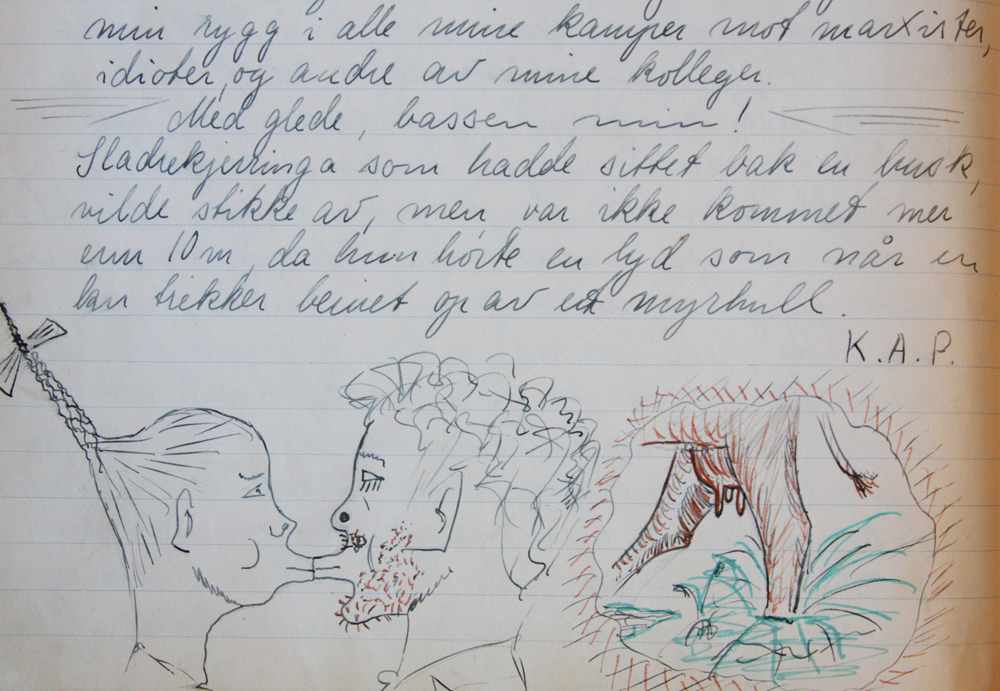 min rygg i alle mine kamper mot marxister,
idioter, og andre av mine kolleger.
Med glede, bassen min!
Sladrekjerringa som hadde sittet bak en busk,
vilde stikke av, men var ikke kommet mer
enn 10 m, da hun hørte en lyd som når en
ku trekker beinet op av et myrhull.
K.A.P.